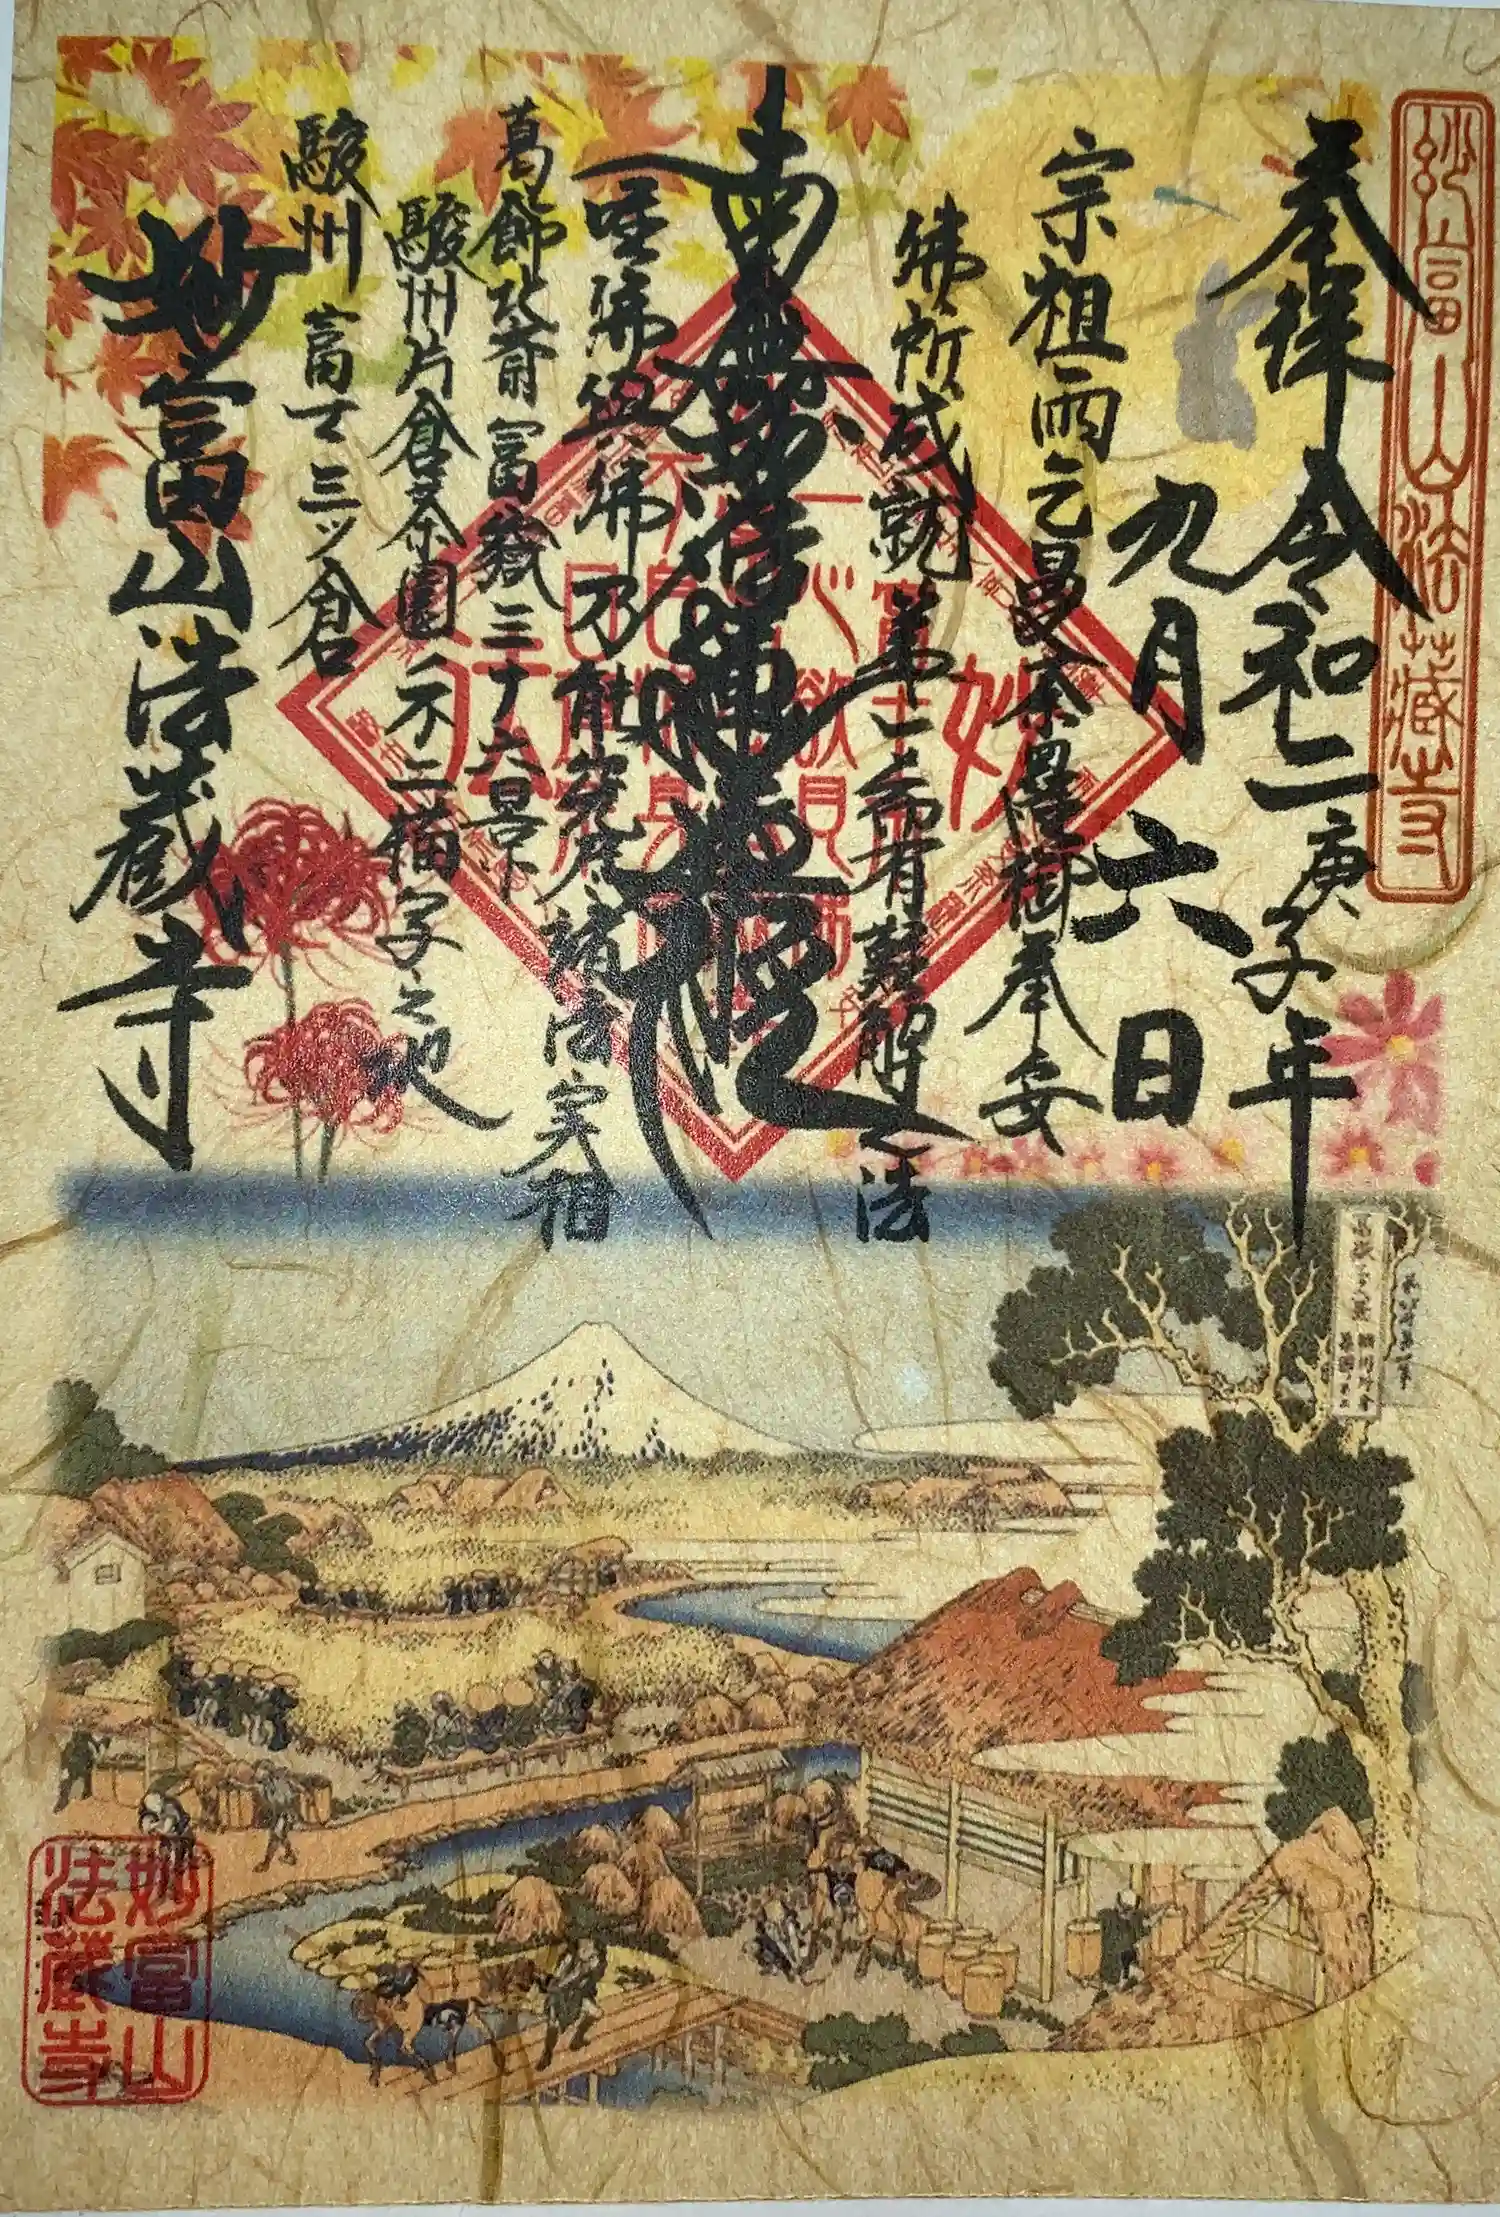 妙富山法藏寺
奉拝 令和二庚子年
九月六日
宗祖雨乞曼荼羅御奉安
佛所成就第一希有難解之法
南無妙法蓮華経
唯佛與佛乃能究尽諸法実相
葛飾北斎富嶽三十六景
駿州片倉茶園ノ不二描写之地
駿州 富士三ツ倉
妙富山法蔵寺
妙富山
法蔵寺